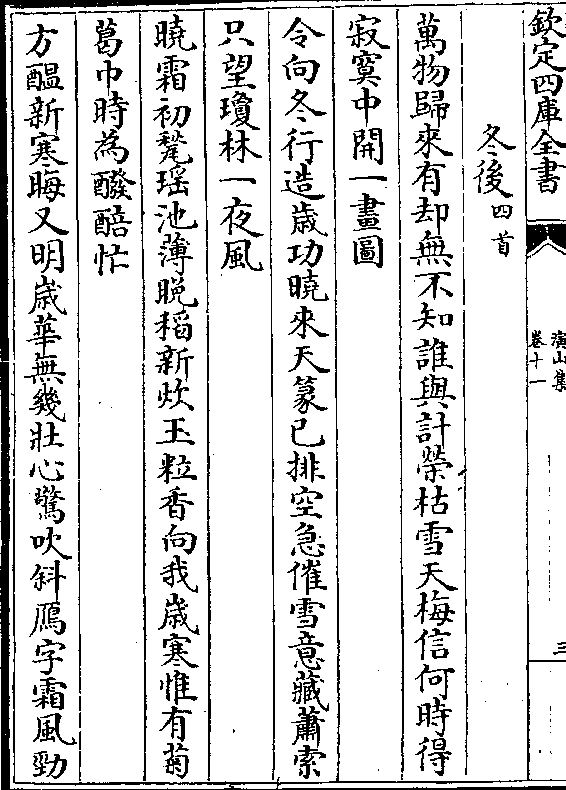 欽定四庫全書
演山集
卷十一
三
冬後四首
萬物歸來有却無不知誰與計榮枯雪天梅信何時得
寂寞中開一畫圖
令向冬行造歲功曉來天篆已排空急催雪意藏蕭索
只望瓊林一夜風
曉霜初凳瑶池薄晩稻新炊玉粒香向我歲寒惟有菊
葛巾時為醱醅忙
方醖新寒晦又明歲華無幾壯心驚吹斜鴈字霜風勁